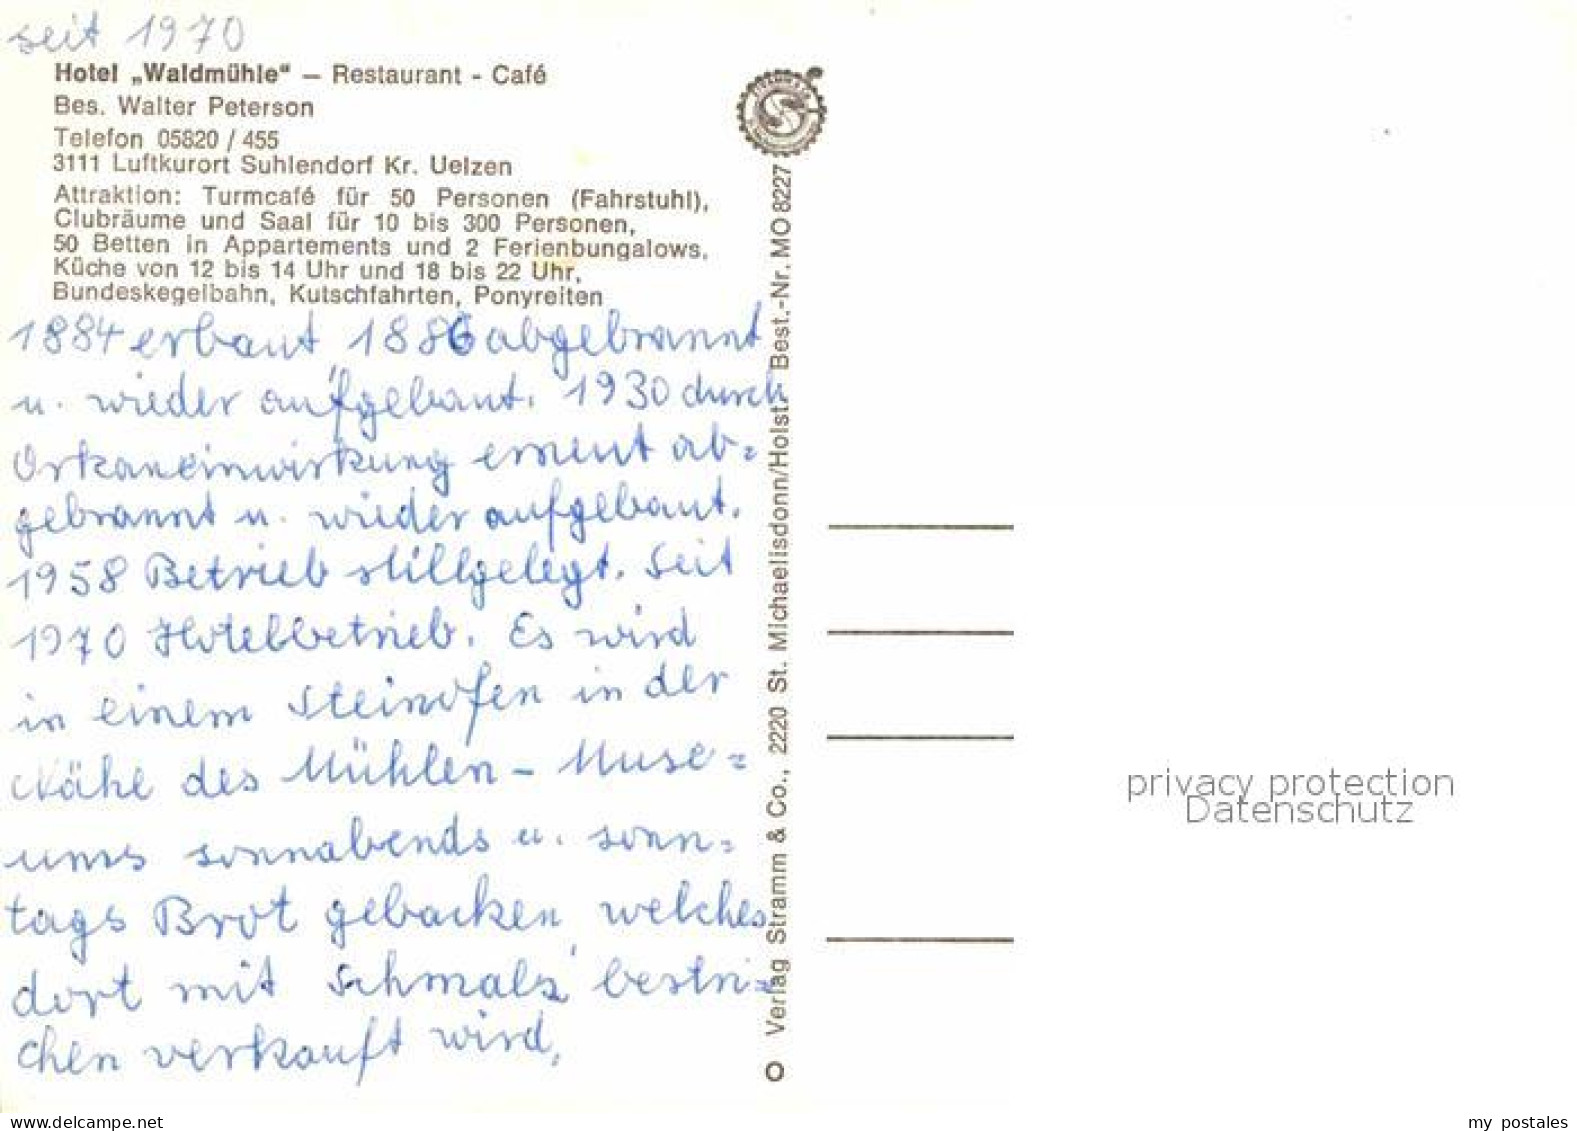 seit 1970
Hotel „Waldmühle“ — Restaurant - Café
Bes. Walter Peterson
Telefon 05820 / 455
3111 Luftkurort Suhlendorf Kr. Uelzen
Attraktion: Turmcafé für 50 Personen (Fahrstuhl),
Clubräume und Saal für 10 bis 300 Personen,
50 Betten in Appartements und 2 Ferienbungalows,
Küche von 12 bis 14 Uhr und 18 bis 22 Uhr,
Bundeskegelbahn, Kutschfahrten, Ponyreiten
1884 erbaut, 1886 abgebrannt
u. wieder aufgebaut. 1930 durch
Orkaneinwirkung erneut ab=
gebrannt u. wieder aufgebaut.
1958 Betrieb stillgelegt. Seit
1970 Hotelbetrieb. Es wird
in einem Steinofen in der
Nähe des Mühlen - Muse=
ums sonnabends u. sonn=
tags Brot gebacken, welches
dort mit Schmalz bestri=
chen verkauft wird.
O Verlag Stramm & Co., 2220 St. Michaelisdonn/Holst. Best.-Nr. MO 8227
privacy protection
Datenschutz
www.delcampe.net
my_postales